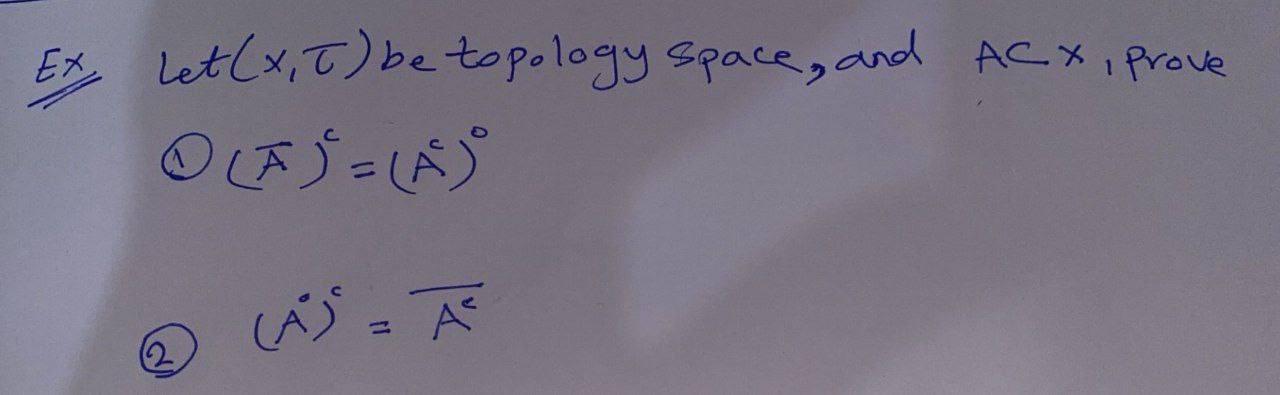 Ex Let (X,τ) be topology space, and A⊂X, prove
① (A̅)ᶜ = (Aᶜ)°
② (A°)ᶜ = A̅ᶜ̅